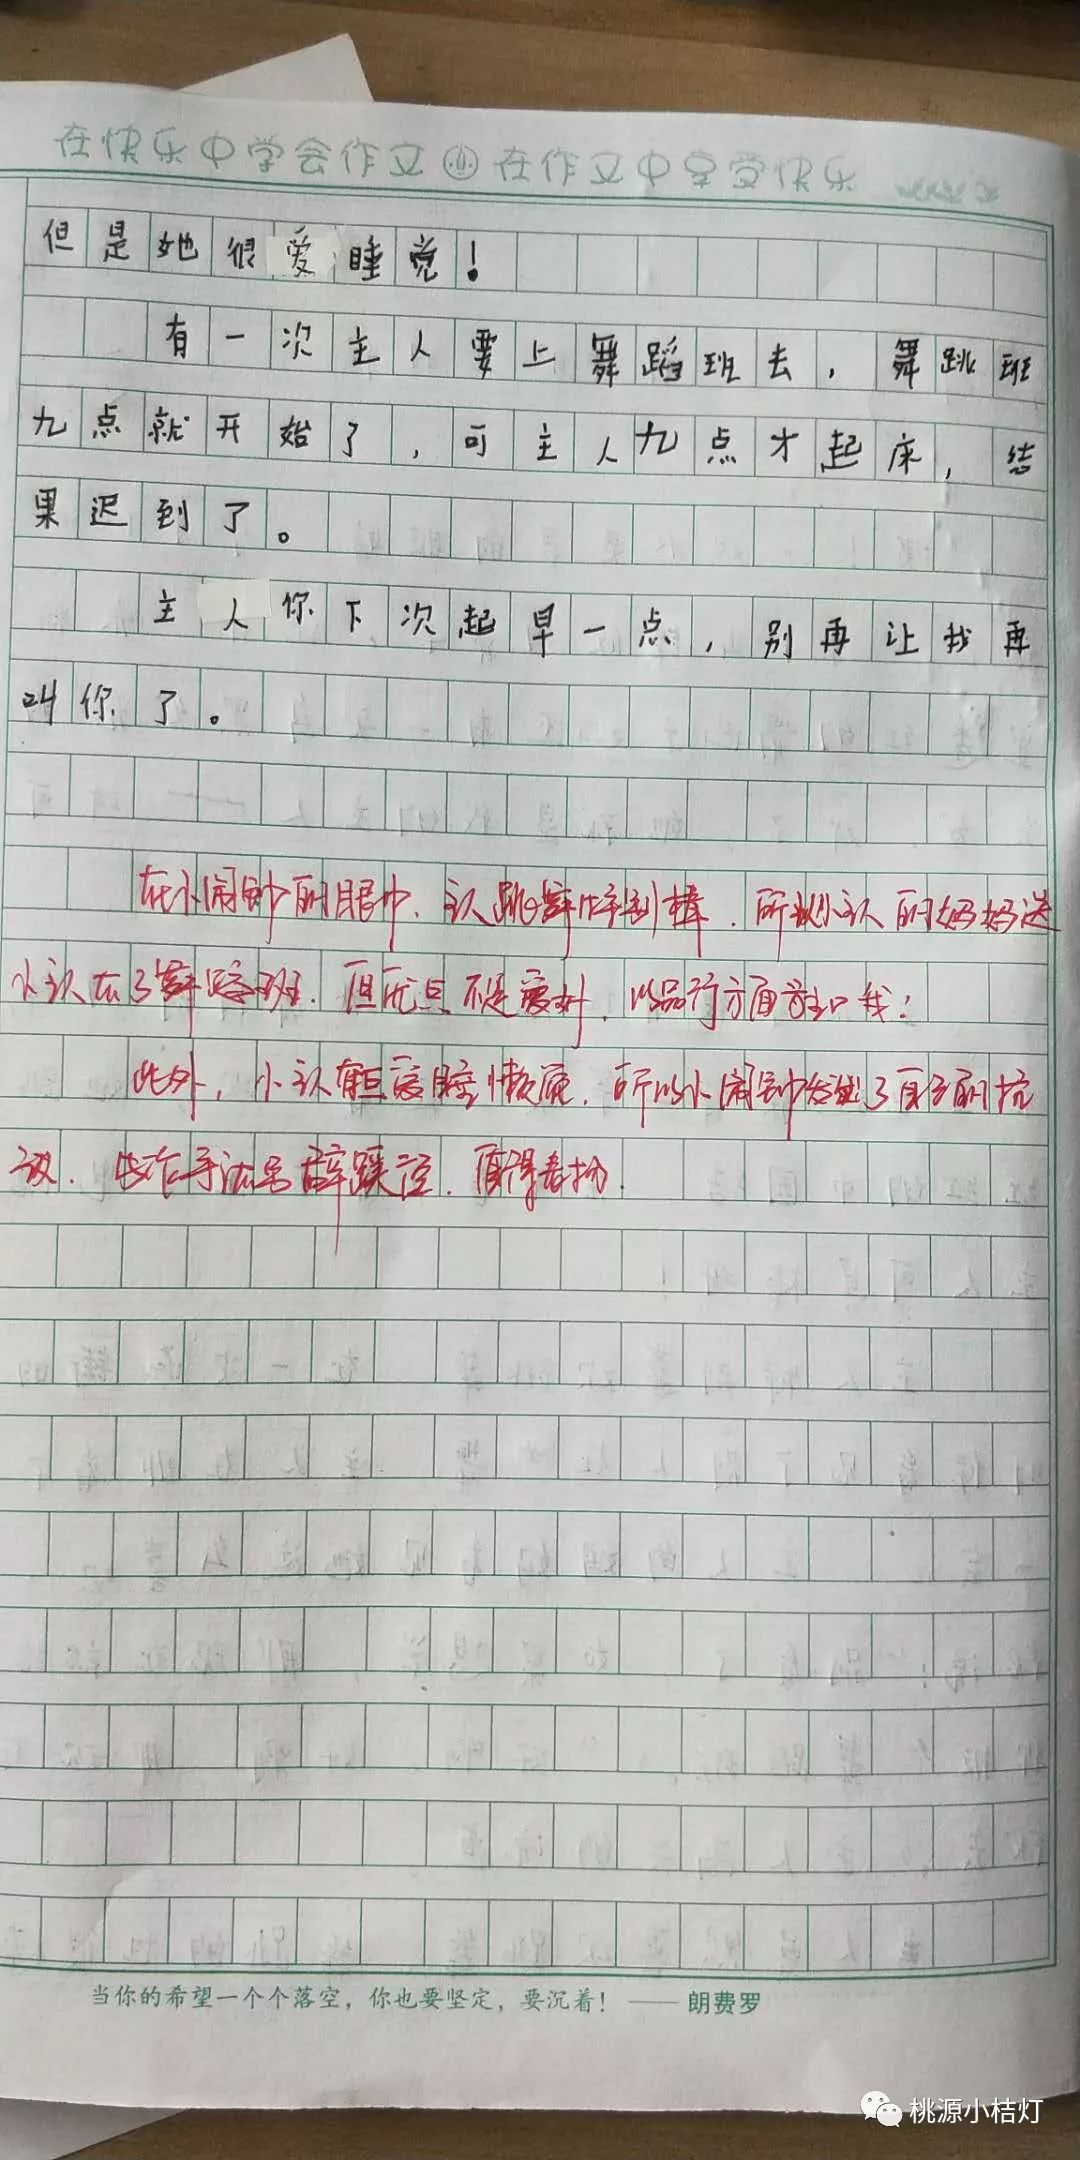 在快乐中学会作文 在作文中享受快乐
但是她很爱睡觉！
有一次主人要上舞蹈班去，舞跳班
九点就开始了，可主人九点才起床，结
果迟到了。
主人你下次起早一点，别再让我再
叫你了。
在小闹钟的眼中，主人跳舞特别棒，所以小主人的妈妈送
小主人去了舞蹈班，但优点不是爱好，以品行方面为主
此外，小主人有旦爱睡懒觉，所以小闹钟发出了自己的抗
议，写作手法另辟蹊径，值得表扬
当你的希望一个个落空，你也要坚定，要沉着！ —— 朗费罗
桃源小桔灯